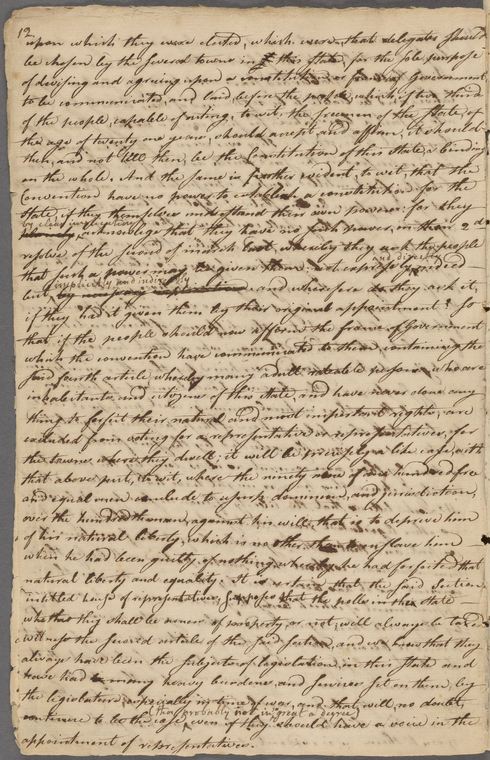 12
upon which they were elected, which were, that delegates should
be chosen by the several towns in this State, for the sole purpose
of devising and agreeing upon a constitution or form of Government
to be communicated, and laid before the people, which, if two thirds
of the people, capable of voting, to wit, the freemen of the State, of
the age of twenty one years, should accept and affirm, it should
then, and not till then, be the Constitution of this State, & binding
on the whole. And the same is further evident, to wit, that the
Convention have no power to establish a constitution for the
State, if they themselves understand their own powers: for they
by clear
acknowledge that they have no such power, in their 2d
resolve of the second of march last whereby they ask the people
and directly
that such a power may be given them, not expressly indeed
implicitly and indirectly
but, and wherefore do they ask it,
if they had it given them by their original appointment? So
that if the people should now affirm the frame of Government
which the convention have communicated to them, containing the
said fourth article whereby many adult rateable persons who are
inhabitants, and citizens of this state, and have never done any
thing to forfeit their natural and most important rights, are
excluded from voting for a representative or representatives, for
the towns where they dwell; it will be precisely a like case, with
that above put, to wit, where the ninety nine of one hundred free
and equal men conclude to usurp dominion, and jurisdiction,
over the hundredth man, against his will, that is to deprive him
of his natural liberty, which is no other than to enslave him
when he had been guilty of nothing whereby he had forfeited that
natural liberty and equality. It is certain that the said Section
intitled house of representatives, supposes that the polls in this State
whether they shall be owners of property, or not, will always be taxed
witness the second article of the said section, and we know that they
always have been the subjects of legislation, in this State and
have had many heavy burdens, and services set on them, by
the legislature, especially in time of war, and that will, no doubt,
tho' probably not in so great a degree
continue to be the case, even if they should have a voice in the
appointment of representatives.